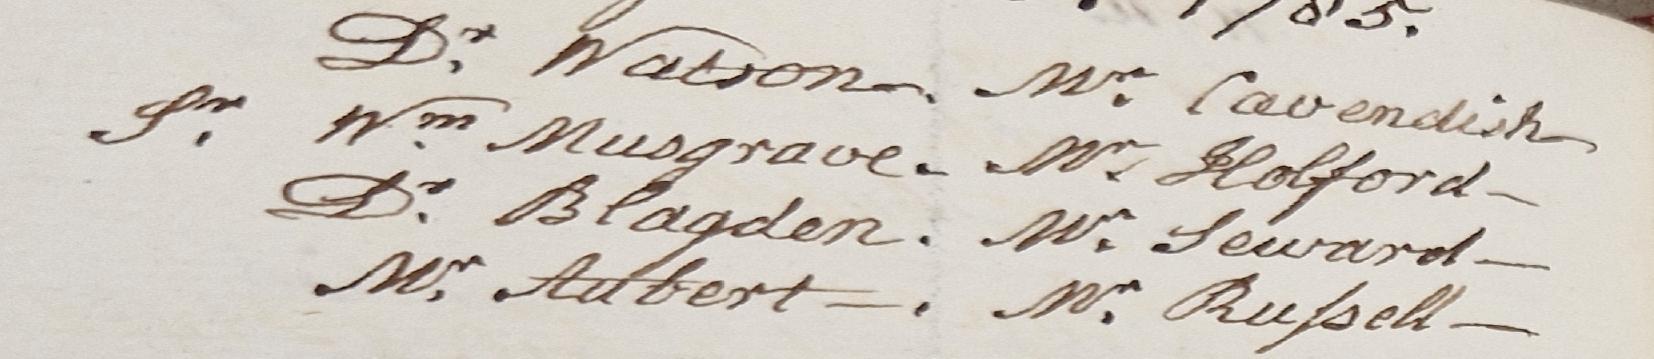 1785.
Dr. Watson — . Mr. Cavendish
Sr. Wm. Musgrave . . Mr. Holford —
Dr. Blagden . Mr. Seward —
Mr. Aubert — . Mr. Ruſsell —